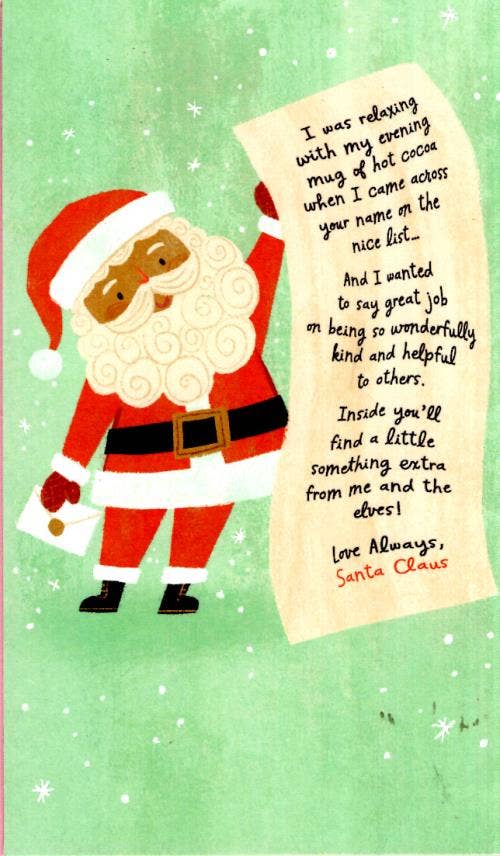 I was relaxing
with my evening
mug of hot cocoa
when I came across
your name on the
nice list...
And I wanted
to say great job
on being so wonderfully
kind and helpful
to others.
Inside you'll
find a little
something extra
from me and the
elves!
Love Always,
Santa Claus